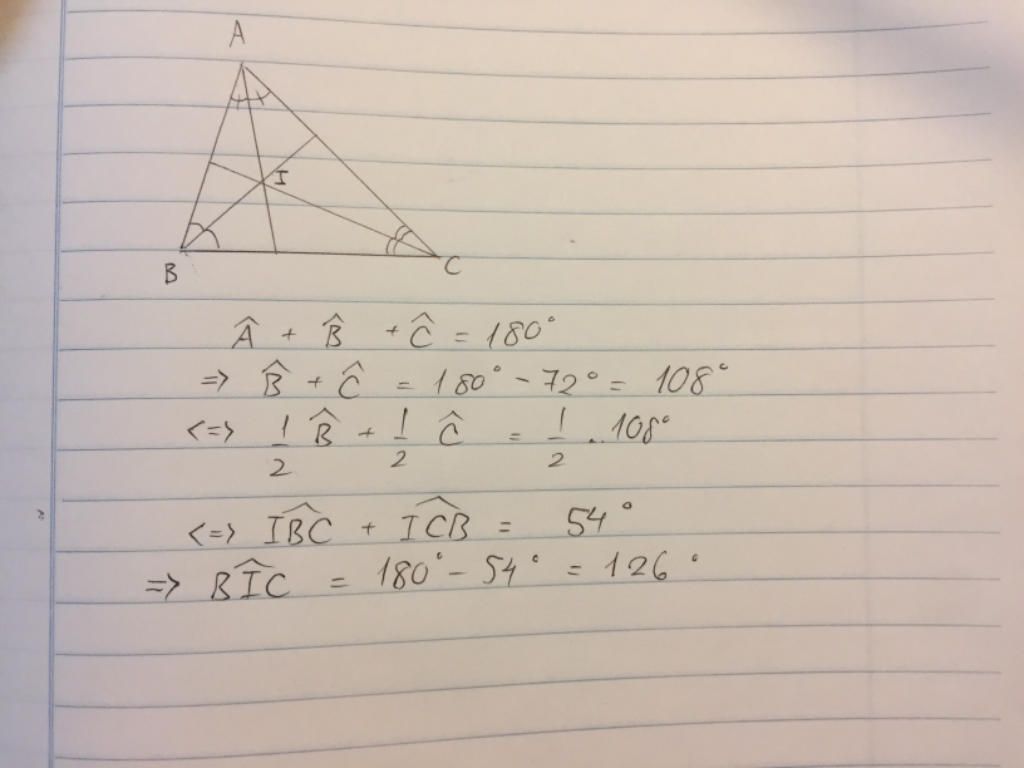 A
I
B
C
Â + B̂ + Ĉ = 180°
=> B̂ + Ĉ = 180° - 72° = 108°
<=> 1/2 B̂ + 1/2 Ĉ = 1/2 . 108°
<=> IB̂C + IĈB = 54°
=> BÎC = 180° - 54° = 126°